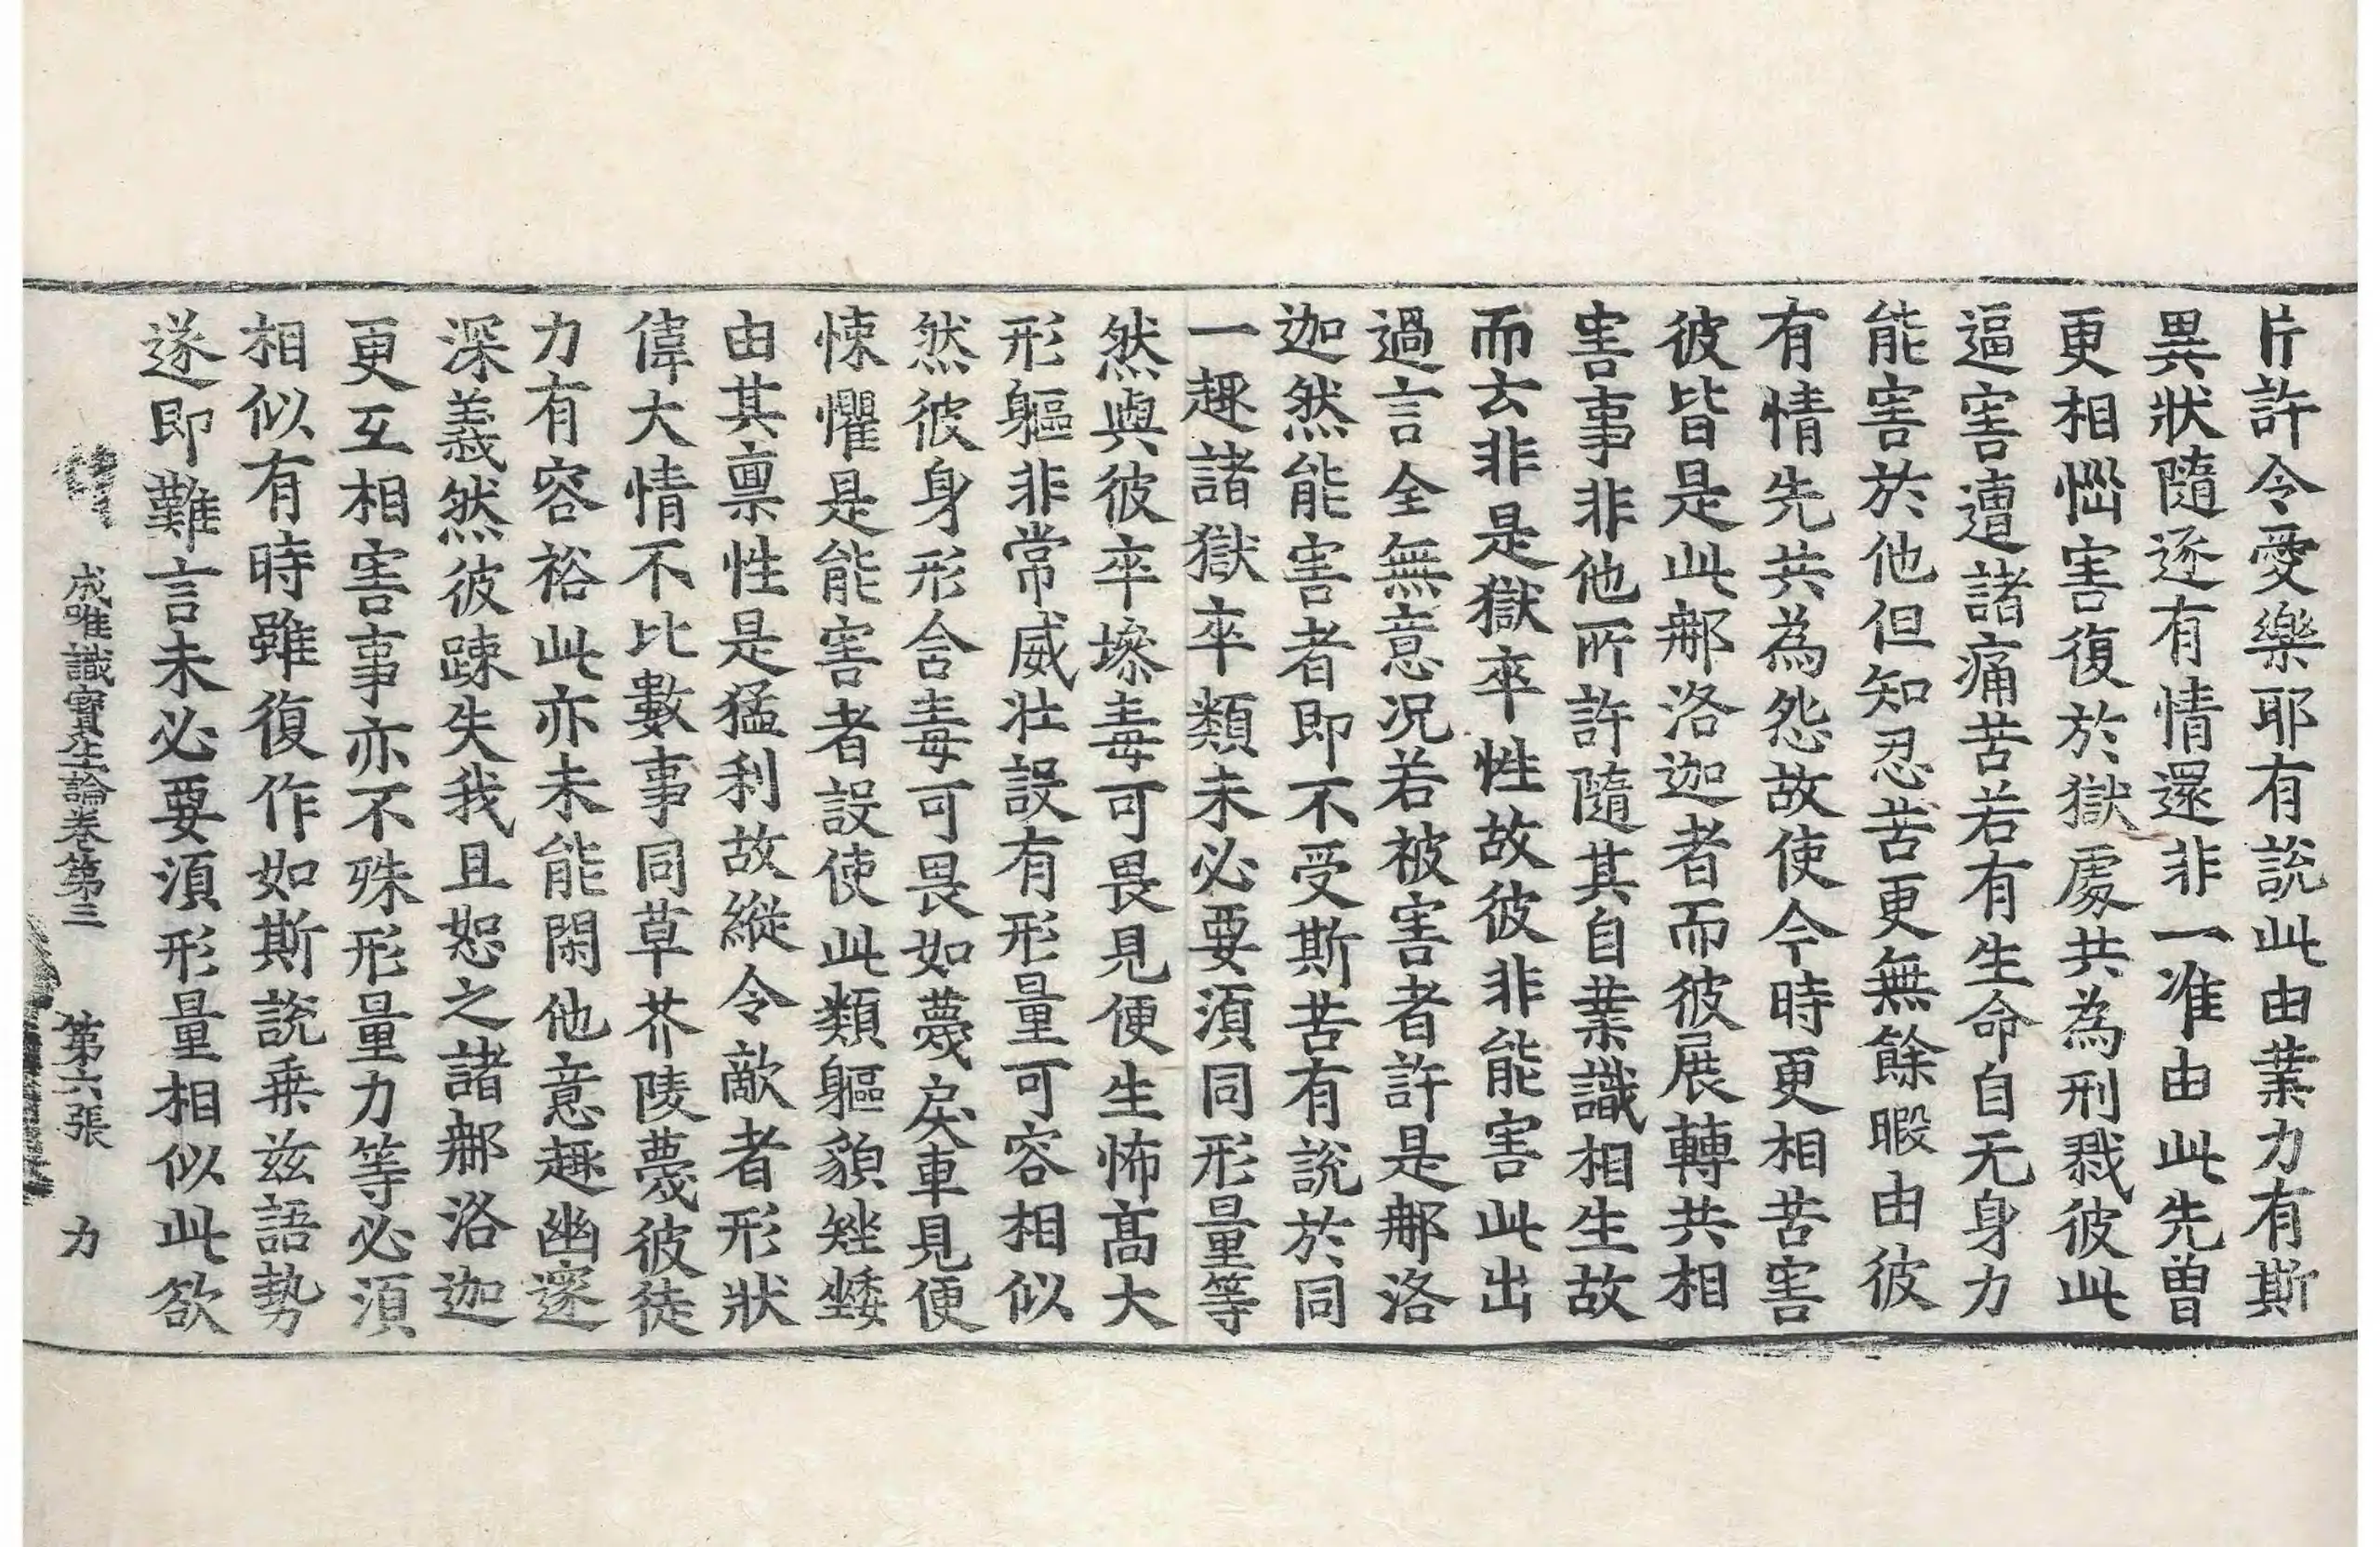 片許令愛樂耶有説此由業力有斯
異狀隨逐有情還非一准由此先曽
更相惱害復於獄處共為刑戮彼此
逼害遭諸痛苦若有生命自无身力
能害於他但知忍苦更無餘暇由彼
有情先共為怨故使今時更相苦害
彼皆是此那洛迦者而彼展轉共相
害事非他所許隨其自業識相生故
而云非是獄卒性故彼非能害此出
過言全無意况若被害者許是那洛
迦然能害者即不受斯苦有説於同
一趣諸獄卒類未必要須同形量等
然與彼卒墋毒可畏見便生怖髙大
形軀非常威壯設有形量可容相似
然彼身形含毒可畏如薎戾車見便
悚懼是能害者設使此類軀貌矬矮
由其禀性是猛利故縱令敵者形狀
偉大情不比數事同草芥陵薎彼徒
力有容裕此亦未能閑他意趣幽邃
深義然彼踈失我且恕之諸那洛迦
更互相害事亦不殊形量力等必須
相似有時雖復作如斯説乗兹語勢
遂即難言未必要須形量相似此欲
成唯識寶生論卷第三　第六張　力